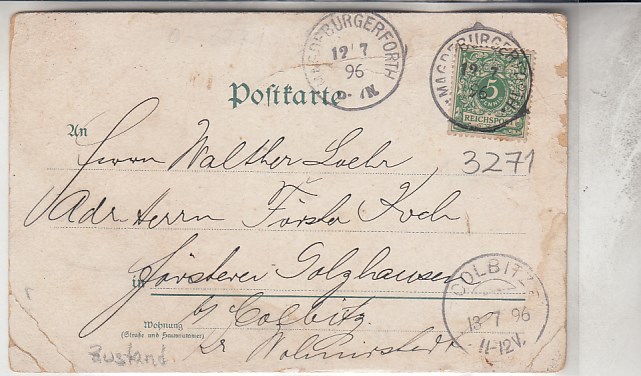 MAGDEBURGERFORTH
12 7
96
Postkarte
MAGDEBURGERFORTH
12 7
96
5
PFENNIG
REICHSPOST
3271
An
Herrn Walther Loehr
Adr Herrn Förster Koch
in Försterei Golzhausen
b/ Colbitz
Wohnung
(Straße und Hausnummer)
Wolmirstedt
Zustand
COLBITZ
13 7 96
11-12V.